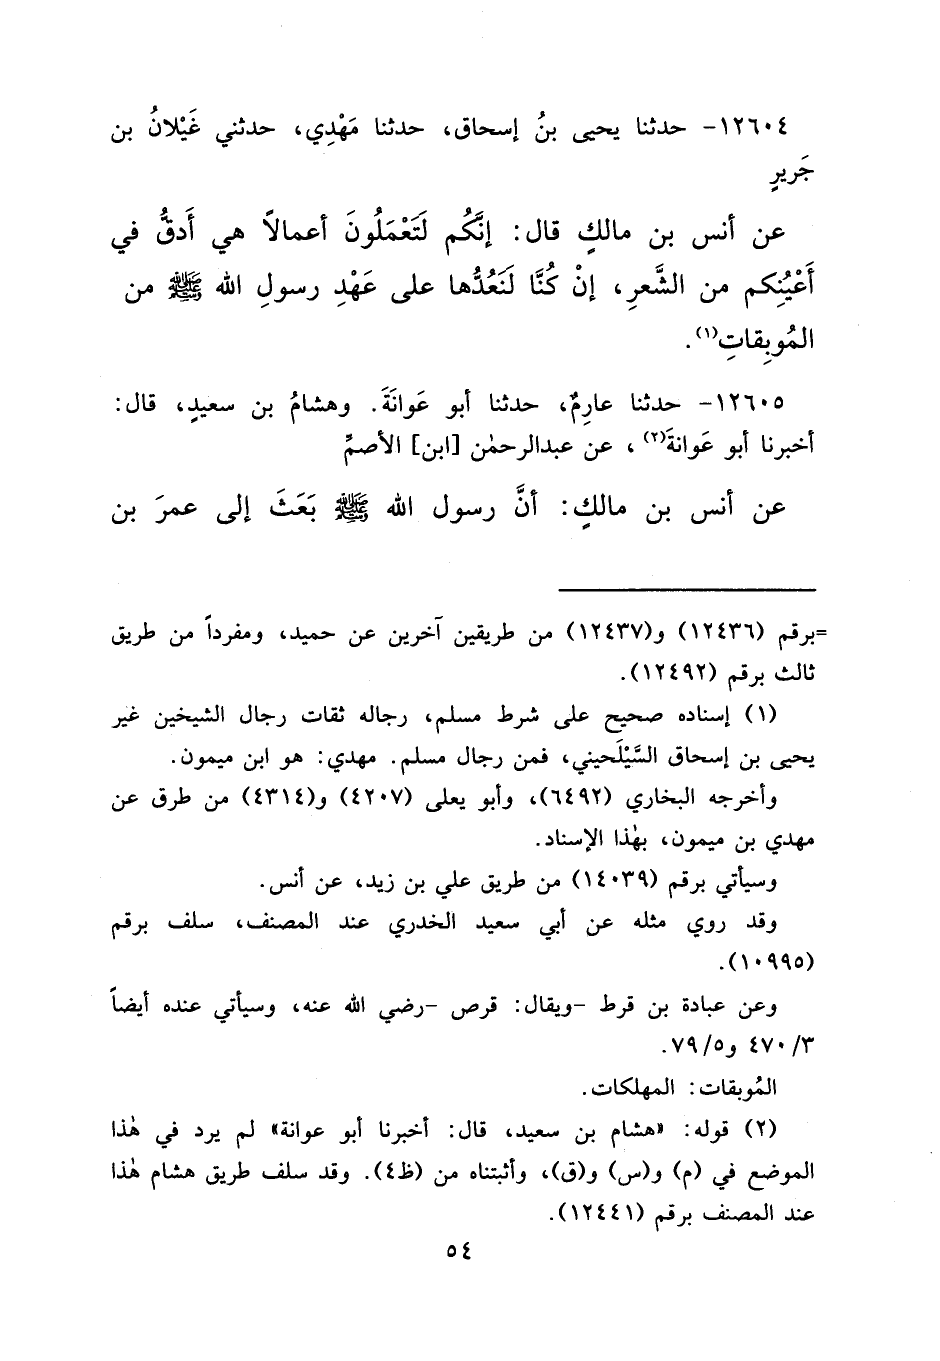 ١٢٦٠٤- حدثنا يحيى بنُ إسحاق، حدثنا مَهْدِي، حدثني غَيْلانُ بن
جَريرٍ
عن أنس بن مالكٍ قال: إنَّكُم لَتَعْمَلُونَ أعمالاً هي أَدقُّ في
أَعْيُنِكم من الشَّعرِ، إنْ كُنَّا لَنَعُدُّها على عَهْدِ رسولِ الله ﷺ من
المُوبِقاتِ(١).
١٢٦٠٥- حدثنا عارِمٌ، حدثنا أبو عَوانَةَ. وهشامُ بن سعيدٍ، قال:
أخبرنا أبو عَوانة(٢)، عن عبدالرحمٰن [ابن] الأصمِّ
عن أنس بن مالكٍ: أنَّ رسول الله ﷺ بَعَثَ إلى عمرَ بن
=برقم (١٢٤٣٦) و(١٢٤٣٧) من طريقين آخرين عن حميد، ومفرداً من طريق
ثالث برقم (١٢٤٩٢).
(١) إسناده صحيح على شرط مسلم، رجاله ثقات رجال الشيخين غير
يحيى بن إسحاق السَّيْلَحيني، فمن رجال مسلم. مهدي: هو ابن ميمون.
وأخرجه البخاري (٦٤٩٢)، وأبو يعلى (٤٢٠٧) و(٤٣١٤) من طرق عن
مهدي بن ميمون، بهٰذا الإسناد.
وسيأتي برقم (١٤٠٣٩) من طريق علي بن زيد، عن أنس.
وقد روي مثله عن أبي سعيد الخدري عند المصنف، سلف برقم
(١٠٩٩٥).
وعن عبادة بن قرط -ويقال: قرص -رضي الله عنه، وسيأتي عنده أيضاً
٤٧٠/٣ و٧٩/٥.
المُوبقات: المهلكات.
(٢) قوله: «هشام بن سعيد، قال: أخبرنا أبو عوانة» لم يرد في هٰذا
الموضع في (م) و(س) و(ق)، وأثبتناه من (ظ٤). وقد سلف طريق هشام هٰذا
عند المصنف برقم (١٢٤٤١).
٥٤